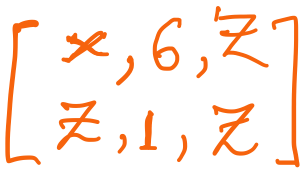 [x, 6, z
z, 1, z]